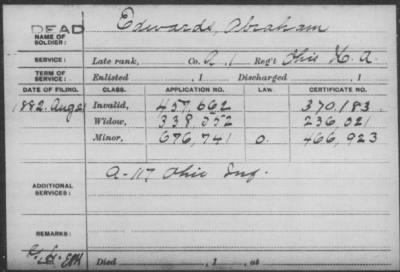 DEAD
NAME OF SOLDIER: Edwards, Abraham
SERVICE: Late rank, Co. A. 1 Reg't Ohio H. A.
TERM OF SERVICE: Enlisted , 1 Discharged , 1
DATE OF FILING. CLASS. APPLICATION NO. LAW. CERTIFICATE NO.
1882. Aug 21 Invalid, 457,662 370,183.
Widow, 338,552 236,021
Minor, 676,741 O. 466,923
ADDITIONAL SERVICES: A-117 Ohio Inf.
REMARKS:
Died , 1 , at